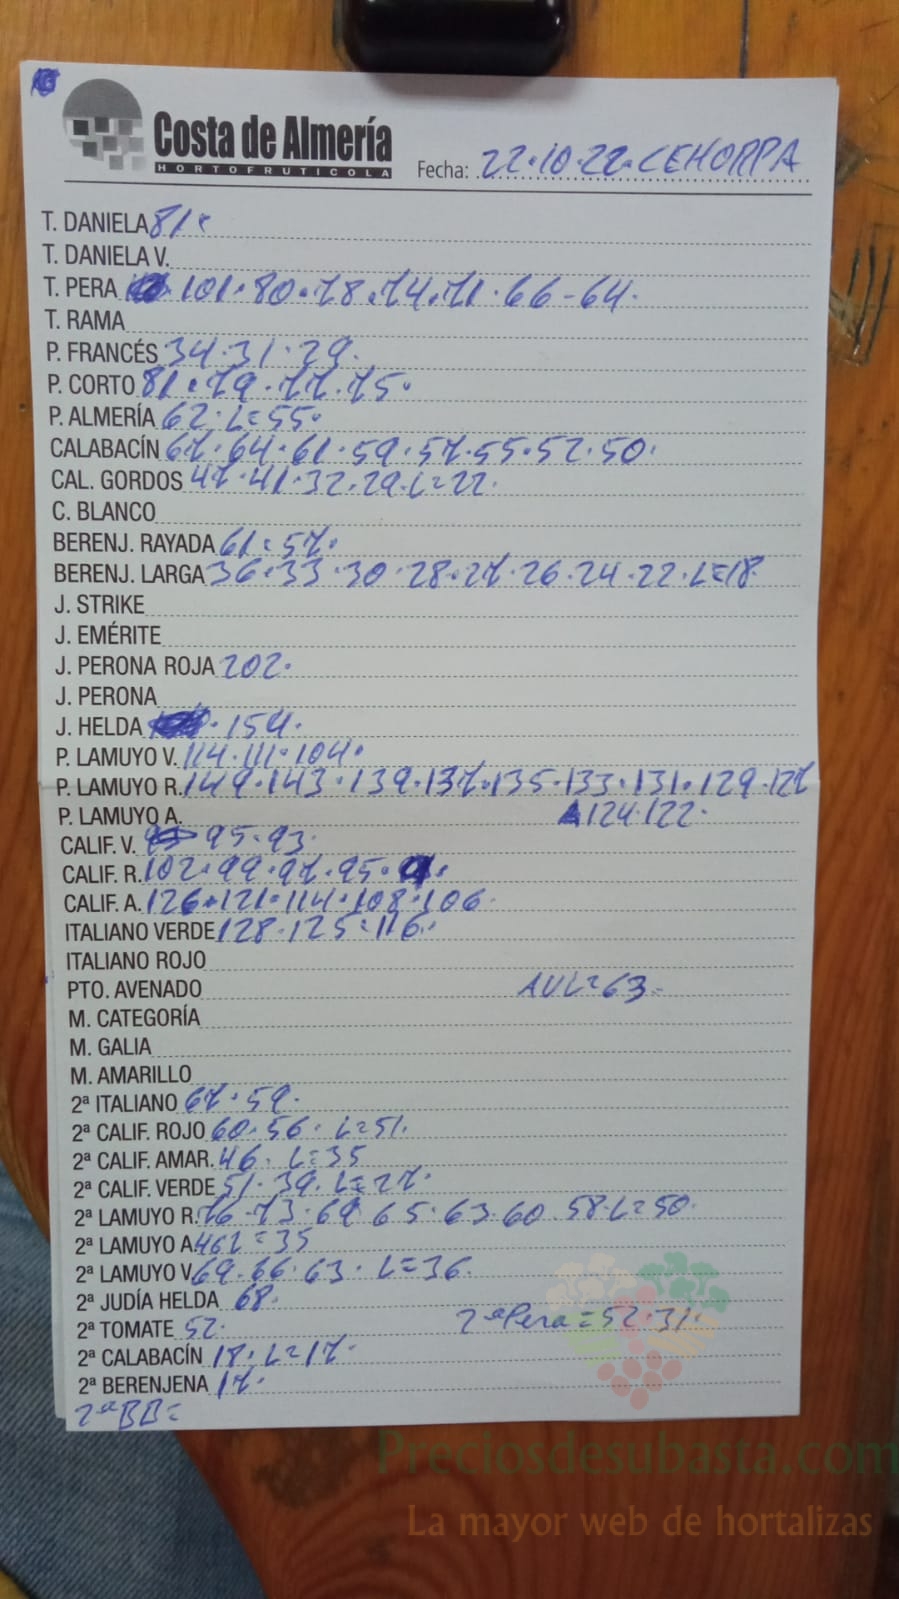 Costa de Almería
HORTOFRUTICOLA
Fecha: 22·10·22· CEHORPA
T. DANIELA 81·
T. DANIELA V.
T. PERA 101·80·78·74·71·66-64·
T. RAMA
P. FRANCÉS 34·31·29·
P. CORTO 81·79·77·75·
P. ALMERÍA 62·L=55·
CALABACÍN 67·64·61·59·57·55·52·50·
CAL. GORDOS 47·41·32·29·L=22·
C. BLANCO
BERENJ. RAYADA 61·57·
BERENJ. LARGA 36·33·30·28·27·26·24·22·L=18·
J. STRIKE
J. EMÉRITE
J. PERONA ROJA 202·
J. PERONA
J. HELDA · 154·
P. LAMUYO V. 114·111·104·
P. LAMUYO R. 149·143·139·137·135·133·131·129·127
P. LAMUYO A. 124·122·
CALIF. V. 95·93·
CALIF. R. 102·99·97·95·
CALIF. A. 126·121·114·108·106·
ITALIANO VERDE 128·125·116·
ITALIANO ROJO
PTO. AVENADO AVL=63·
M. CATEGORÍA
M. GALIA
M. AMARILLO
2ª ITALIANO 67·59·
2ª CALIF. ROJO 60·56·L=51·
2ª CALIF. AMAR. 46·L=35
2ª CALIF. VERDE 51·39·L=27·
2ª LAMUYO R. 76·73·69 65·63·60 58·L=50·
2ª LAMUYO A. 46L=35
2ª LAMUYO V. 69·66·63·L=36·
2ª JUDÍA HELDA 68·
2ª TOMATE 52· 2ªPera=52·31·
2ª CALABACÍN 18·L=17·
2ª BERENJENA 17·
2ªBB=
Preciosdesubasta.com
La mayor web de hortalizas